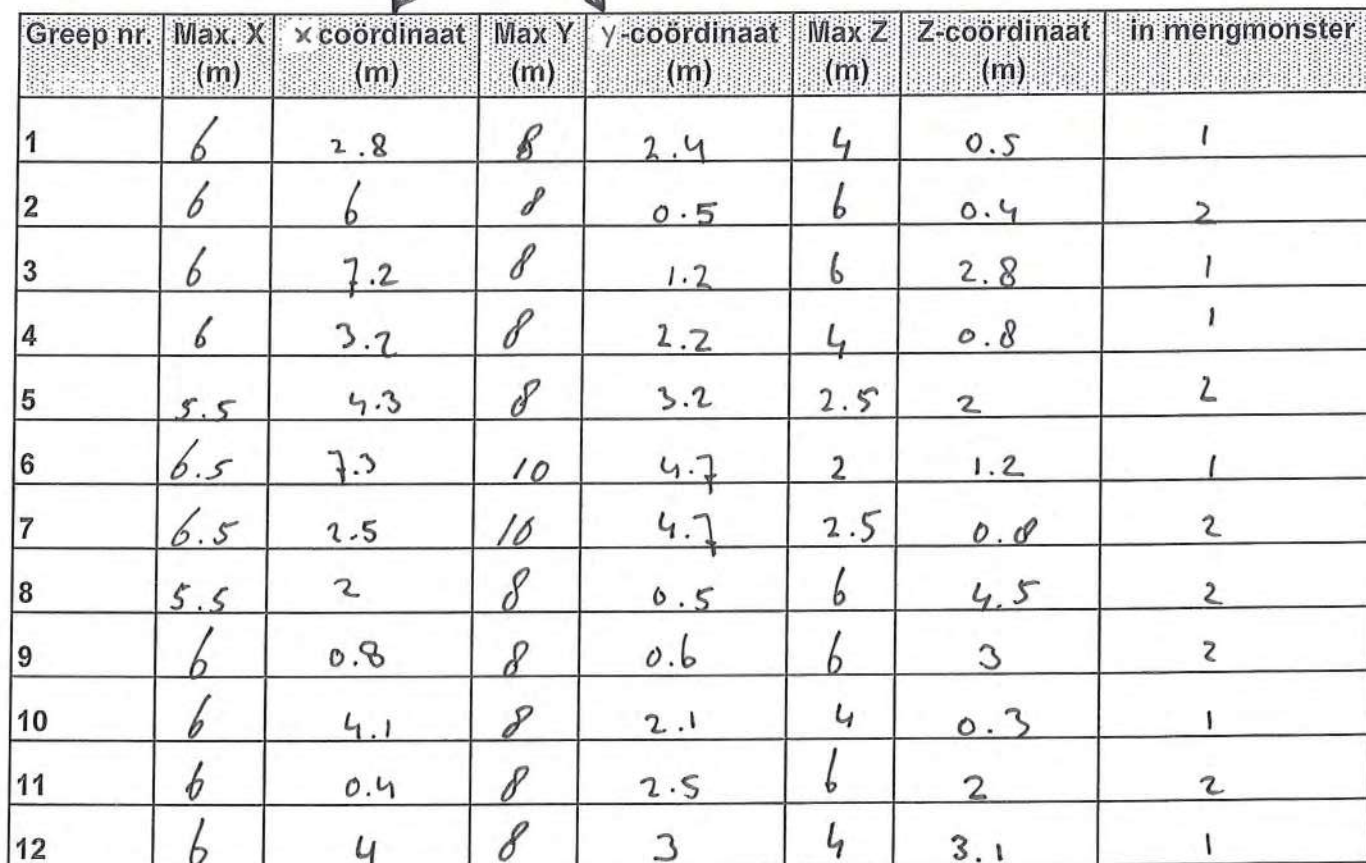 Greep nr. Max. X (m) x coördinaat (m) Max Y (m) y-coördinaat (m) Max Z (m) Z-coördinaat (m) in mengmonster
1 6 2.8 8 2.4 4 0.5 1
2 6 6 8 0.5 6 0.4 2
3 6 7.2 8 1.2 6 2.8 1
4 6 3.2 8 2.2 4 0.8 1
5 5.5 4.3 8 3.2 2.5 2 2
6 6.5 7.3 10 4.7 2 1.2 1
7 6.5 2.5 10 4.7 2.5 0.8 2
8 5.5 2 8 0.5 6 4.5 2
9 6 0.8 8 0.6 6 3 2
10 6 4.1 8 2.1 4 0.3 1
11 6 0.4 8 2.5 6 2 2
12 6 4 8 3 4 3.1 1